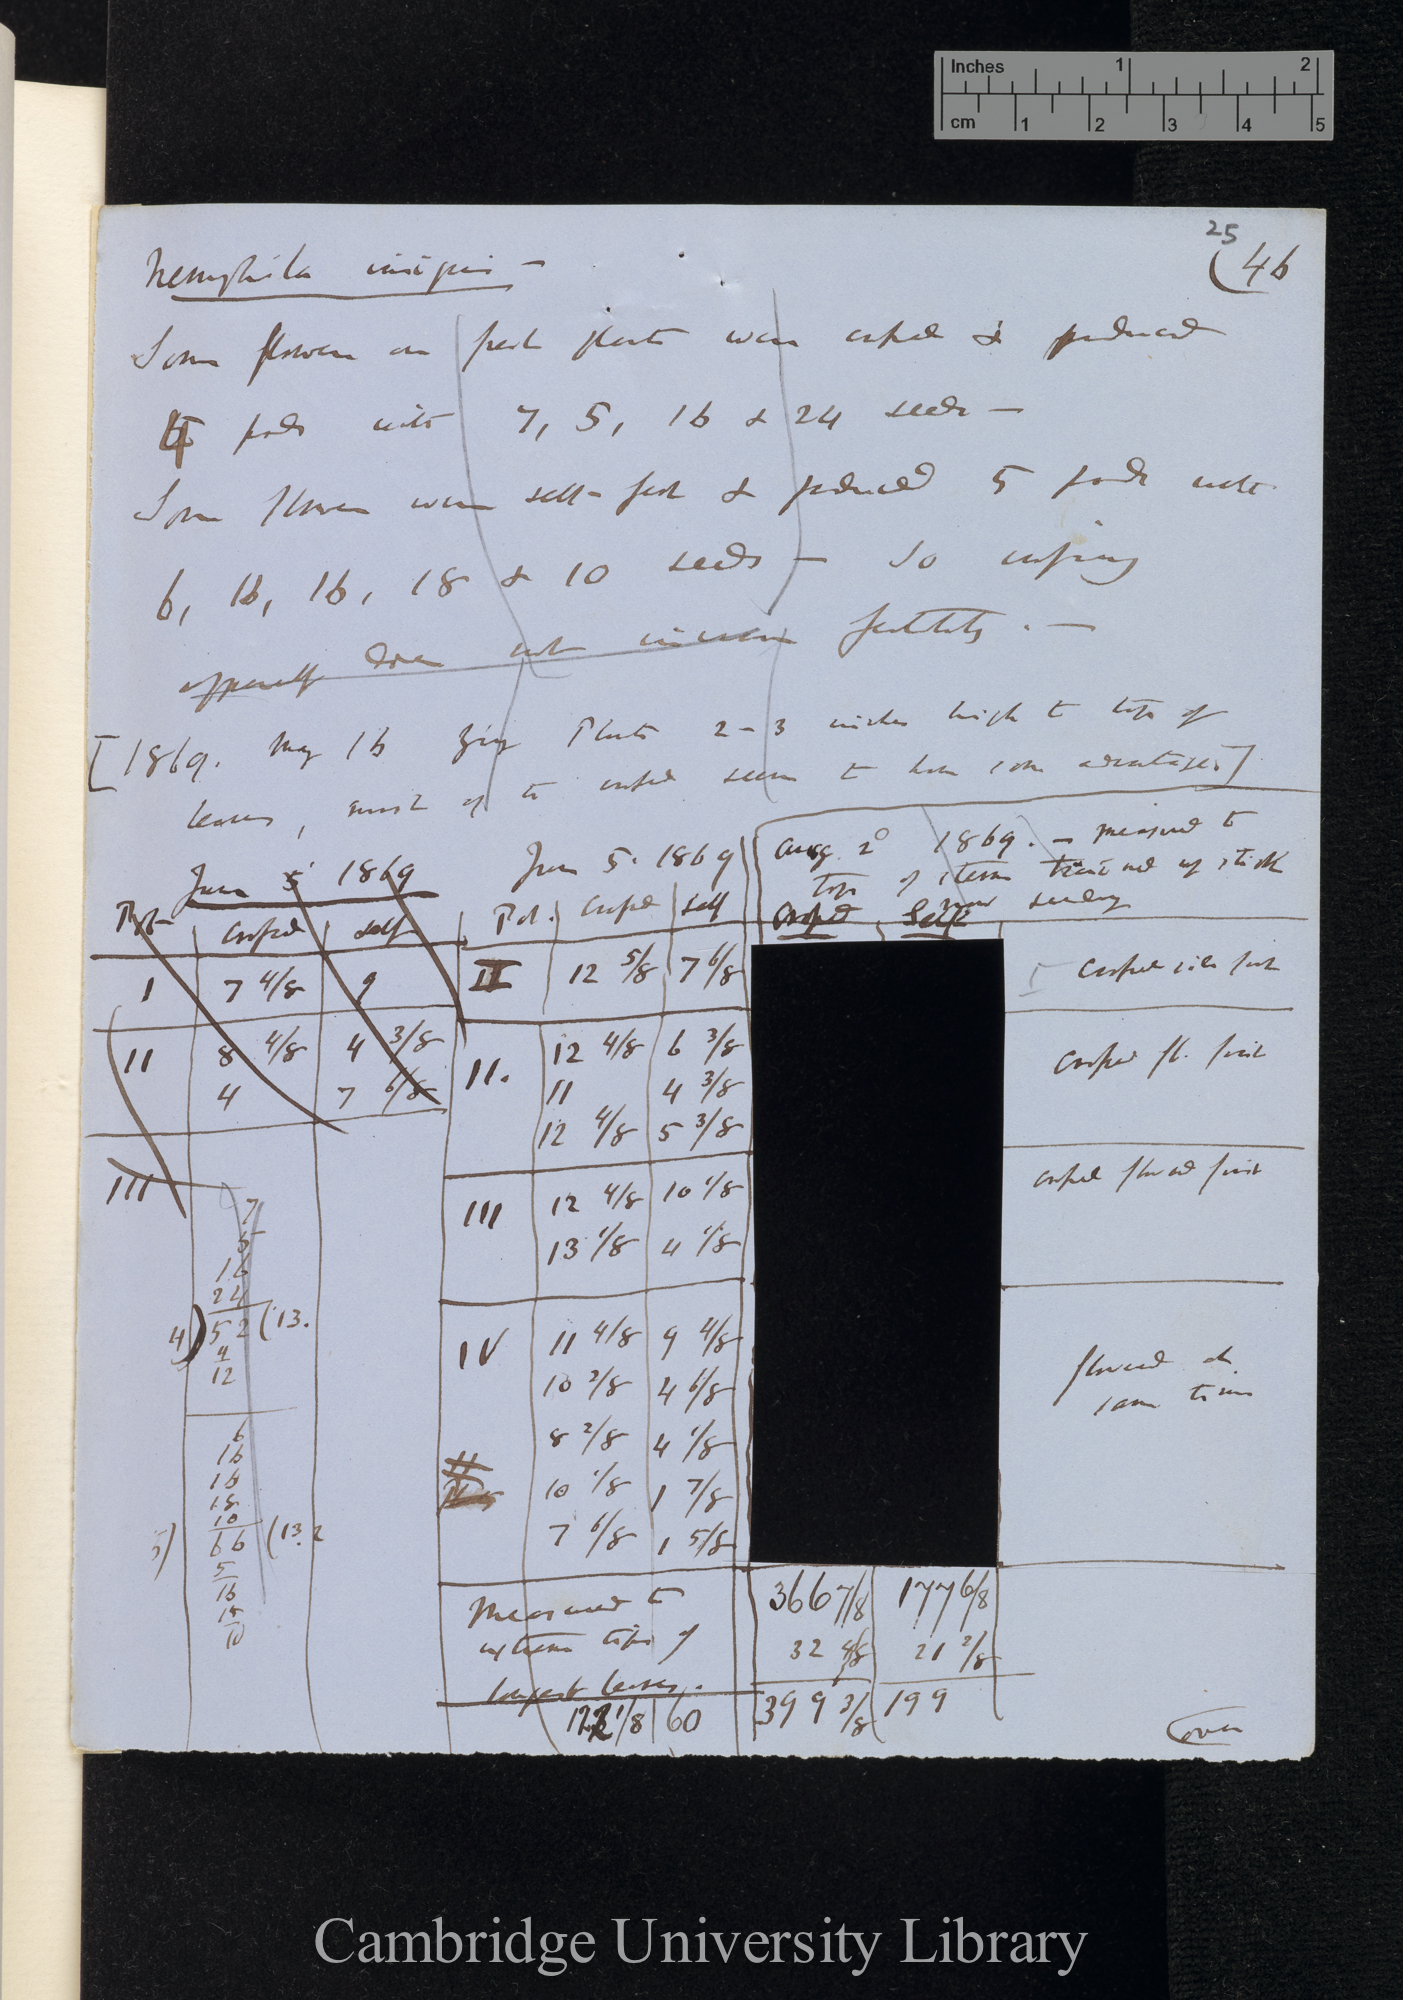 Inches 1 2
cm 1 2 3 4 5
25
(46
Nemophila insignis —
Some flowers on fresh plants were crossed & produced
4 pods with 7, 5, 16 & 24 seeds —
Some flowers were self-fert & produced 5 pods with
6, 16, 16, 18 & 10 seeds — So crossing
apparently does not increase fertility. —
[1869. May 16 Plants 2-3 inches high to tips of
leaves, most of the crossed seem to have some advantage.]
June 5 1869
Pots Crossed Self
I 7 4/8 9
II 8 4/8 4 3/8
4 7 6/8
III
7
5
16
24
4) 52 (13.
4
12
6
16
16
18
10
5) 66 (13.2
5
16
15
10
June 5. 1869
Pot. Crossed Self
I 12 5/8 7 6/8
II. 12 4/8 6 3/8
11 4 3/8
12 4/8 5 3/8
III 12 4/8 10 1/8
13 1/8 4 1/8
IV 11 4/8 9 4/8
10 2/8 4 6/8
8 2/8 4 1/8
10 1/8 1 7/8
7 6/8 1 5/8
Measured to
extreme tips of
longest leaves.
122 1/8 60
Aug 20 1869. — measured to
tops of stems trained up stick
now seeding
Crossed Self
Crossed
Crossed fl. first
Crossed flowered first
flowered at
same time
366 7/8 177 6/8
32 4/8 21 2/8
399 3/8 199
(over
Cambridge University Library